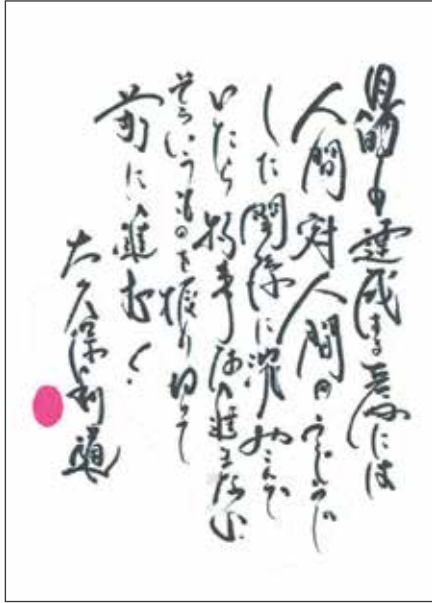 目的を達成する為には
人間対人間のうじうじ
した関係に沈みこんで
いたら物事は進まない
そういうものを振り切って
前に進む!
大久保利通